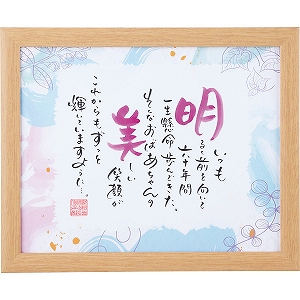 いつも
明るく前を向いて
六十年間
一生懸命歩んできた、
そんなおばあちゃんの
美しい
笑顔が
これからもずっと
輝いていますように…。